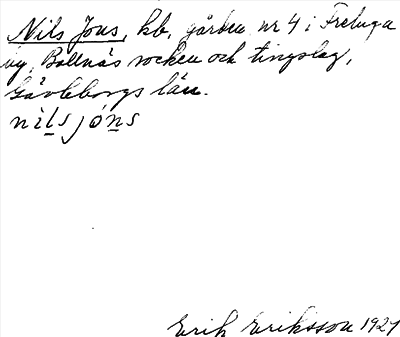 Nils Jons, hb, gården nr 4 i Freluga
by, Bollnäs socken och tingslag,
Gävleborgs län.
nils jóns
Erik Eriksson 1927